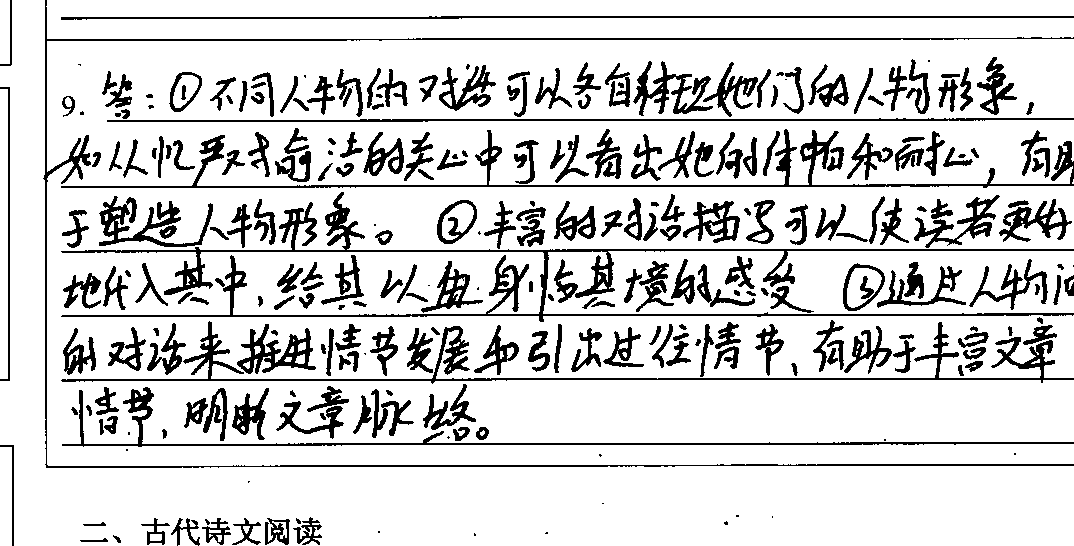 9. 答：①不同人物的对话可以各自体现她们的人物形象，
如从忆严对俞洁的关心中可以看出她的体帖和耐心，有助
于塑造人物形象。 ②丰富的对话描写可以使读者更好
地代入其中，给其以身临其境的感受 ③通过人物
的对话来推进情节发展和引出过往情节，有助于丰富文章
情节，明晰文章脉络。
二、古代诗文阅读